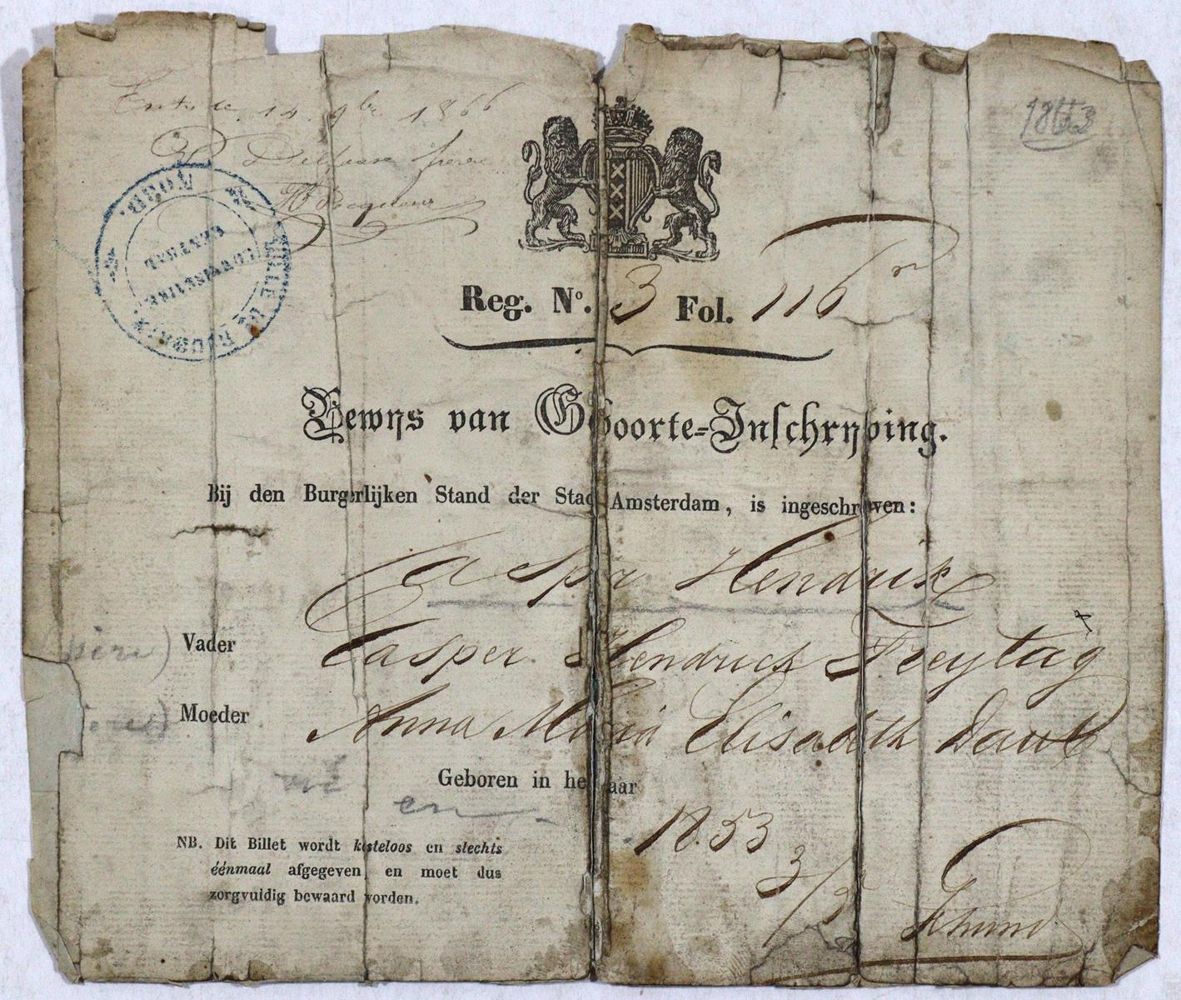 1866
1853
Reg. Nº. 3 Fol. 116
Bewijs van Geboorte-Inschrijving.
Bij den Burgerlijken Stand der Stad Amsterdam, is ingeschreven:
Casper Hendrik
Vader Casper Hendrick Freytag
Moeder Anna Maria Elisabeth
Geboren in het Jaar
en
1853
NB. Dit Billet wordt kosteloos en slechts
éénmaal afgegeven en moet dus
zorgvuldig bewaard worden.